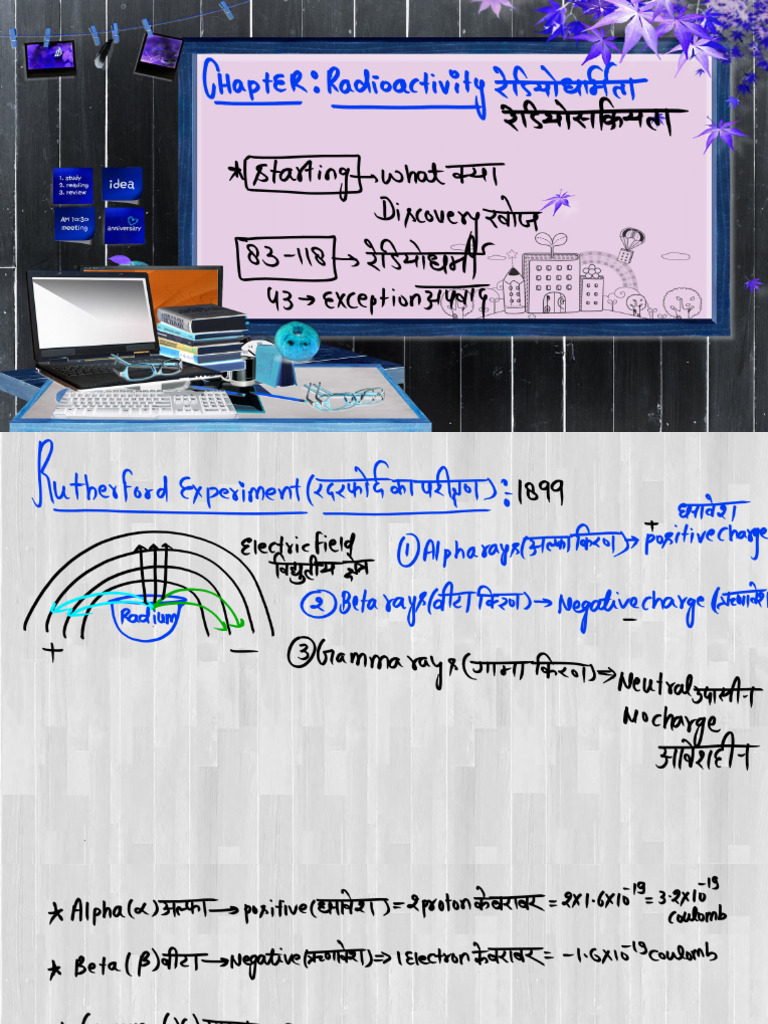 CHAPTER: Radioactivity रेडियोधर्मिता
रेडियोसक्रियता
* Starting → What क्या
Discovery खोज
83-118 → रेडियोधर्मी
43 → Exception अपवाद
1. study
2. reading
3. review
idea
AM 10:30
meeting
anniversary
Rutherford Experiment (रदरफोर्द का परीक्षण) :- 1899
Electric field
विद्युतीय क्षेत्र
Radium
+ −
धनावेश
+
① Alpha rays (अल्फा किरण) → positive charge
② Beta rays (बीटा किरण) → Negative charge (ऋणावेश
−
③ Gamma rays (गामा किरण) → Neutral उदासीन
No charge
आवेशहीन
* Alpha (α) अल्फा → positive (धनावेश) = 2 proton के बराबर = 2×1.6×10⁻¹⁹ = 3.2×10⁻¹⁹
coulomb
* Beta (β) बीटा → Negative (ऋणावेश) ⇒ 1 Electron के बराबर = −1.6×10⁻¹⁹ coulomb